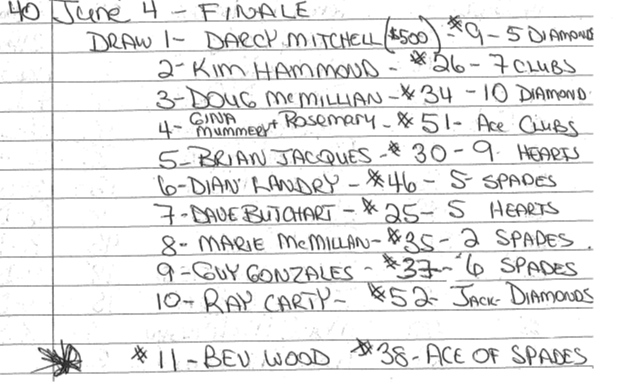 40 June 4 - FINALE
DRAW 1- DARCY MITCHELL ($500) #9 - 5 DIAMONDS
2- KIM HAMMOND - #26 - 7 CLUBS
3- DOUG McMILLIAN - #34 - 10 DIAMOND
4- GINA MUMMERY + Rosemary - # 51- Ace Clubs
5- BRIAN JACQUES - # 30 - 9 HEARTS
6- DIAN LANDRY - #46 - 5 SPADES
7- DAVE BUTCHART - # 25 - 5 HEARTS
8- MARIE McMILLAN - #35 - 2 SPADES.
9- GUY GONZALES - #37 - 6 SPADES
10- RAY CARTY - #52- JACK DIAMONDS
# 11 - BEV WOOD #38 - ACE OF SPADES